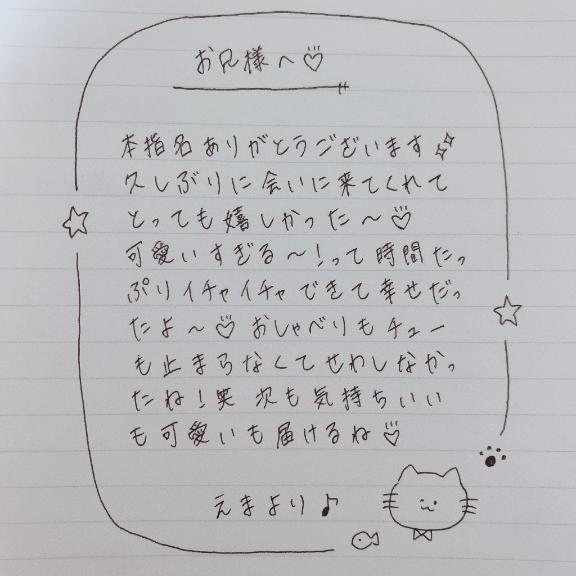 お兄様へ♡
本指名ありがとうございます✨
久しぶりに会いに来てくれて
とっても嬉しかった〜♡
可愛いすぎる〜!って時間たっ
ぷりイチャイチャできて幸せだっ
たよ〜♡ おしゃべりもチュー
も止まらなくてせわしなかっ
たね!笑 次も気持ちいい
も可愛いも届けるね♡
えまより♪